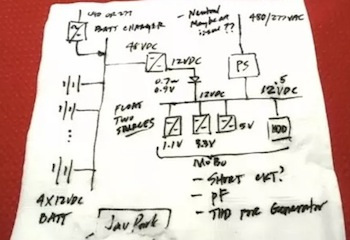 480 OR 277
BATT CHARGER
- Neutral
Maybe an
issue ??
480/277VAC
48 VDC
12VDC
PS
0.7 or
0.4V
12VDC
12.5
VDC
FLOAT
TWO
SOURCES
1.1V
3.3V
5V
HDD
MOBO
- SHORT CKT?
- PF
- THD FOR Generator
4X12VDC
BATT
Jay Park